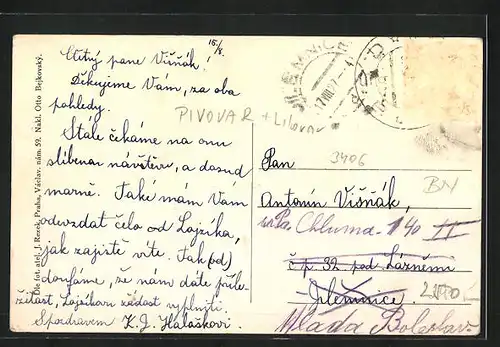 15/8.
Ctěný pane Višňák!
Děkujeme Vám, za oba
pohledy.
Stále čekáme na onu
slíbenou návštěvu, a dosud
marně. Také mám Vám
odevzdat čelo od Lojzíka,
jak zajisté víte. Tak
doufáme, že nám dáte příle-
žitost, Lojzíkovu žádost vyplniti.
S pozdravem K. J. Halaškovi.
Dle fot. atel. J. Rezek, Praha, Václav. nám. 59. Nakl. Otto Bejkovský.
PIVOVAR + Lihovar
17 VIII 27
3406
BN
Pan
Antonín Višňák,
Chluma 140 II
č p. 32. pod Lázněmi
Jilemnice.
Mladá Boleslav